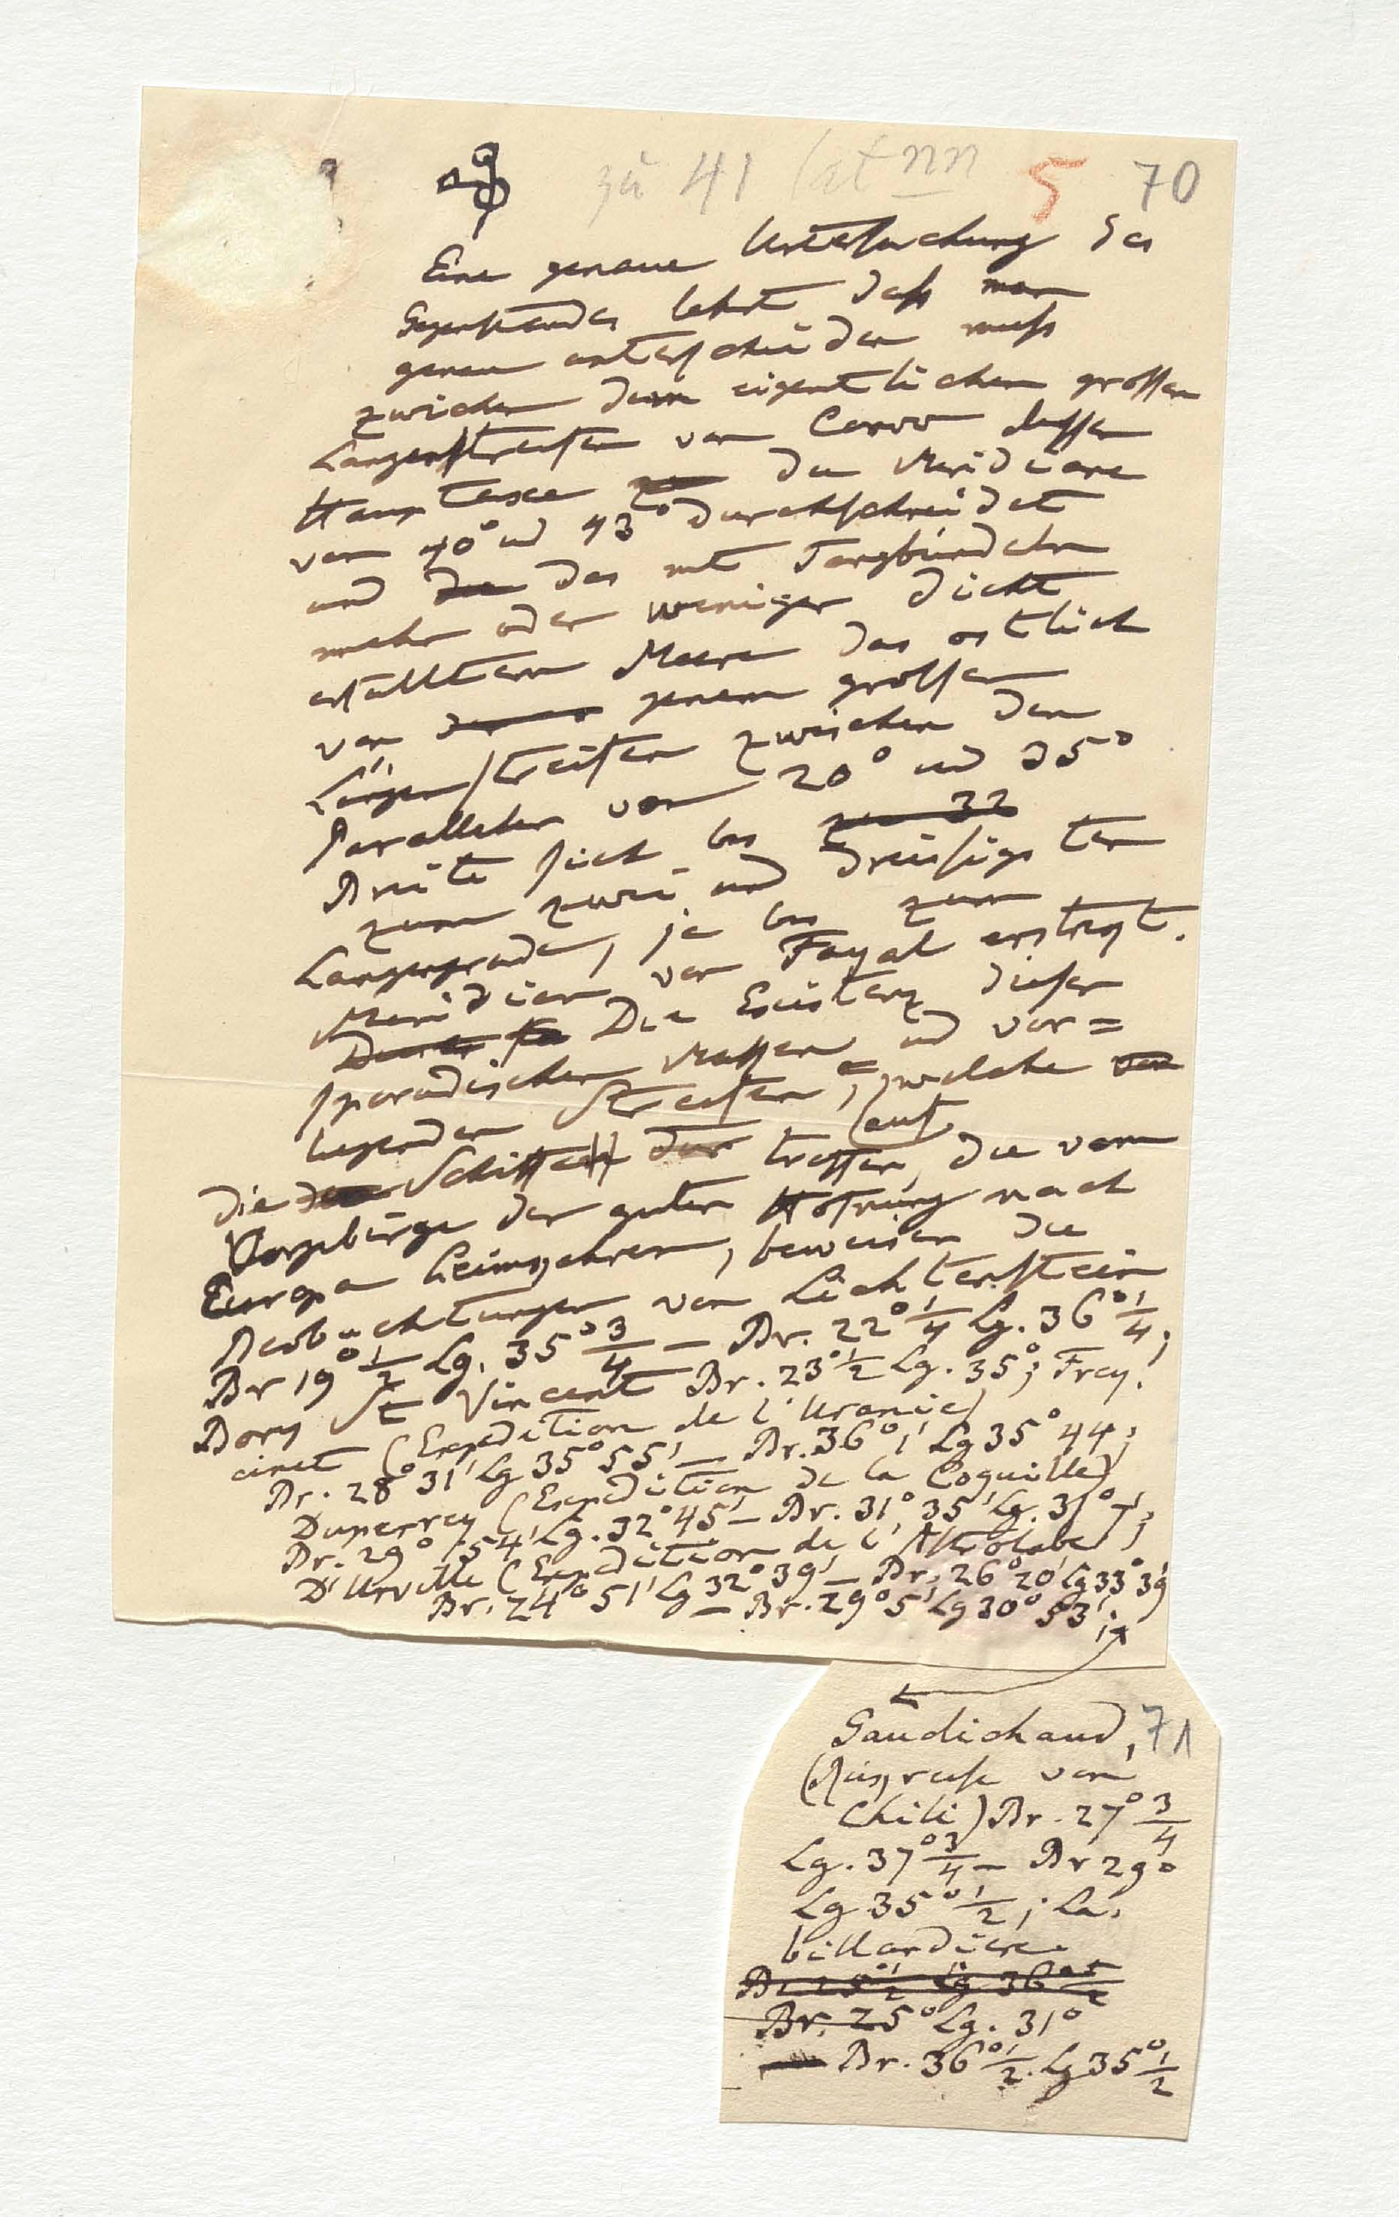 zu 41 lat nn 5 70
Eine genaue Untersuchung des
Gegenstandes lehrt daß man
genau unterscheiden muß
zwischen dem eigentlichen großen
Langenstreifen von Corvo dessen
Hauptaxe die Meridiane
von 40° und 43° durchschneidet
und das mit Tangbündeln
mehr oder weniger dicht
erfülltem Meere das ostlich
von jenem großen
Längenstreifen zwischen den
Parallelen von 20° und 35°
Breite sich bis zu 32
zum zwei und dreißigsten
Langengrade, ja bis zum
Meridian von Fayal erstrekt.
Die Existenz dieser
sporadischen Massen und vor=
liegenden Streifen, welche
die Schiffe treffen, auf die vom
Vorgebirge der guten Hofnung nach
Europa heimkehren, beweisen die
Beobachtungen von Lichtenstein
Br 19°1/2 Lg. 35°3/4 – Br. 22°1/4 Lg. 36°1/4;
Bory St Vincent Br. 23°1/2 Lg. 35°; Frey!
cinet (Expedition de l'Uranie)
Br. 28°31' Lg 35°55' – Br. 36°1' Lg 35°44;
Duperrey (Expedition de la Coquille)
Br. 29°54' Lg. 32°45' – Br. 31°35' Lg. 31°7';
D'Urville (Expedition de l'Astrolabe)
Br. 24°51' Lg 32°39' – Br. 26°20' Lg 33°39'
– Br. 29°5' Lg 30°53';
Gaudichaud, 71
(Rükreise von
Chili) Br. 27°3/4
Lg. 37°3/4 – Br 29°
Lg 35°1/2; La.
billardiere
Br. 25° Lg. 31°
Br. 36°1/2. Lg 35°1/2